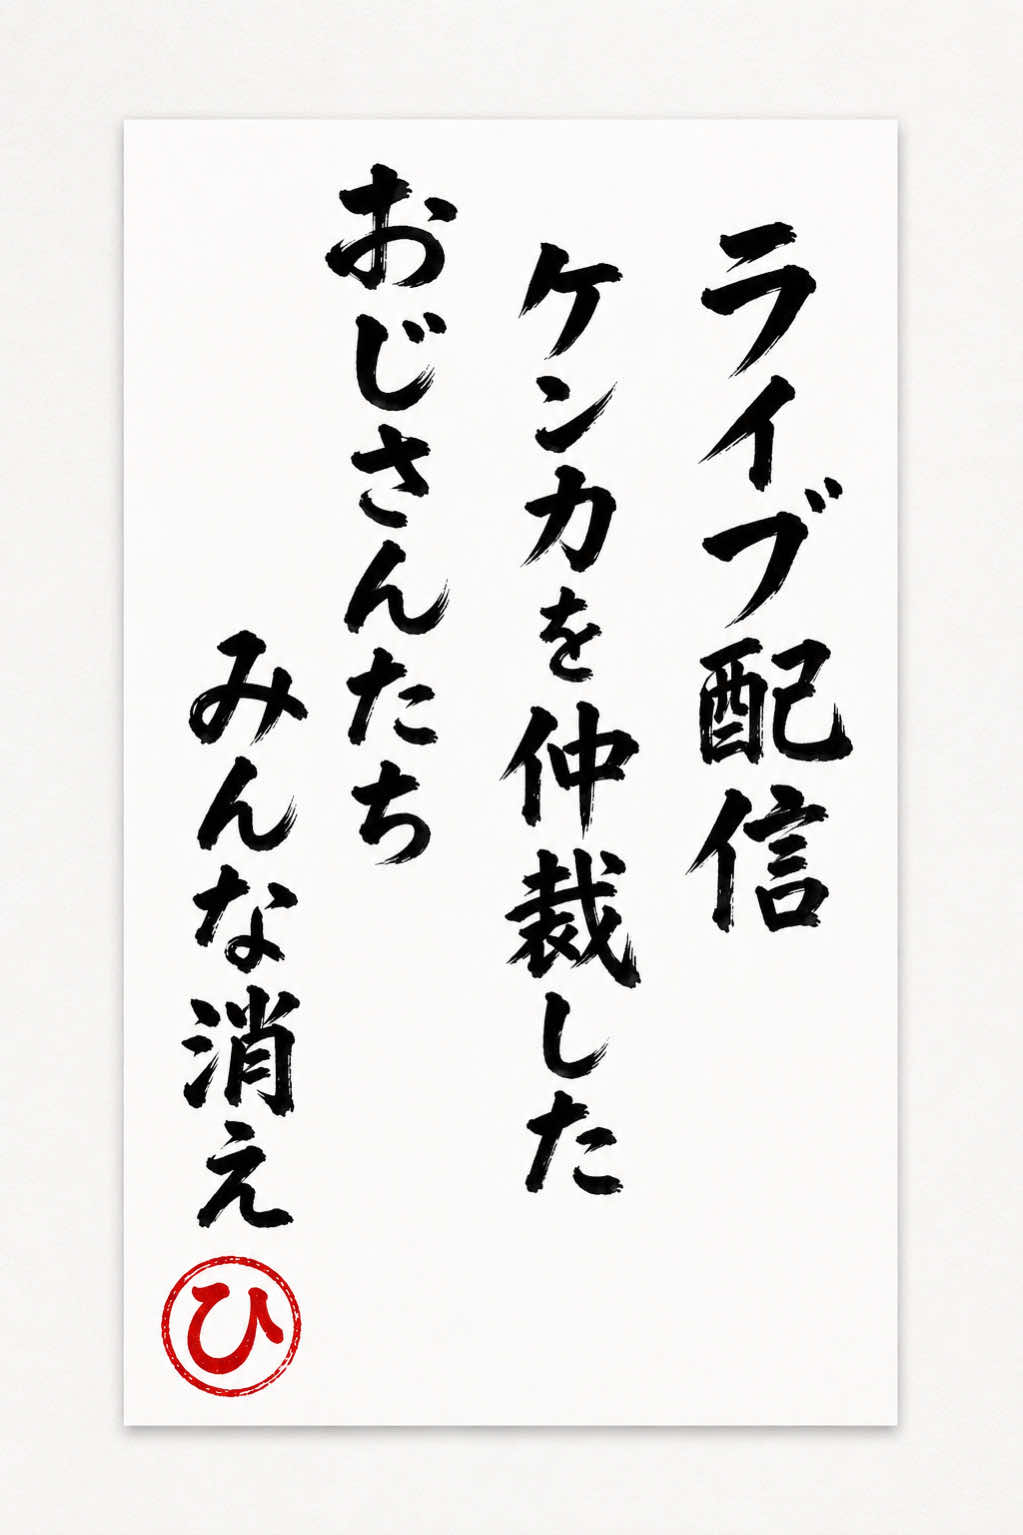 ライブ配信
ケンカを仲裁した
おじさんたち
みんな消え
ひ